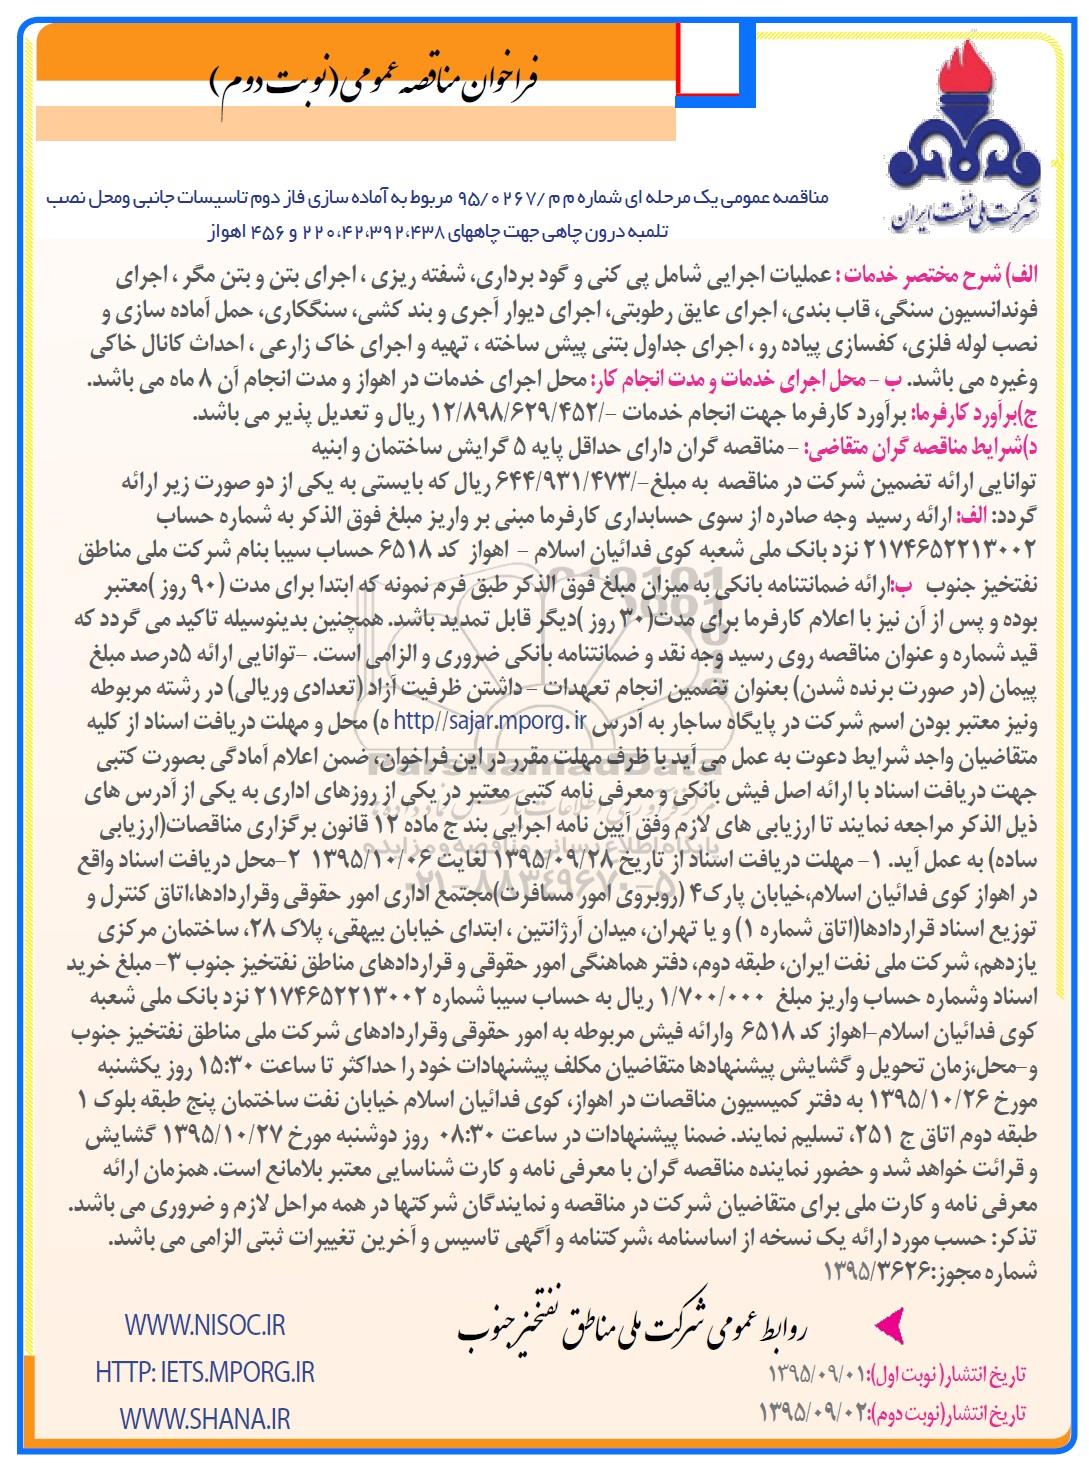 فراخوان مناقصه عمومی (نوبت دوم)
شرکت ملی نفت ایران
مناقصه عمومی یک مرحله ای شماره م م /۹۵/۰۲۶۷ مربوط به آماده سازی فاز دوم تاسیسات جانبی ومحل نصب
تلمبه درون چاهی جهت چاههای ۲۲۰،۴۲،۳۹۲،۴۳۸ و ۴۵۶ اهواز
الف) شرح مختصر خدمات : عملیات اجرایی شامل پی کنی و گود برداری، شفته ریزی ، اجرای بتن و بتن مگر ، اجرای
فوندانسیون سنگی، قاب بندی، اجرای عایق رطوبتی، اجرای دیوار آجری و بند کشی، سنگکاری، حمل آماده سازی و
نصب لوله فلزی، کفسازی پیاده رو ، اجرای جداول بتنی پیش ساخته ، تهیه و اجرای خاک زارعی ، احداث کانال خاکی
وغیره می باشد. ب - محل اجرای خدمات و مدت انجام کار: محل اجرای خدمات در اهواز و مدت انجام آن ۸ ماه می باشد.
ج)برآورد کارفرما: برآورد کارفرما جهت انجام خدمات -/۱۲/۸۹۸/۶۲۹/۴۵۲ ریال و تعدیل پذیر می باشد.
د)شرایط مناقصه گران متقاضی: - مناقصه گران دارای حداقل پایه ۵ گرایش ساختمان و ابنیه
توانایی ارائه تضمین شرکت در مناقصه به مبلغ-/۶۴۴/۹۳۱/۴۷۳ ریال که بایستی به یکی از دو صورت زیر ارائه
گردد: الف: ارائه رسید وجه صادره از سوی حسابداری کارفرما مبنی بر واریز مبلغ فوق الذکر به شماره حساب
۲۱۷۴۶۵۲۲۱۳۰۰۲ نزد بانک ملی شعبه کوی فدائیان اسلام - اهواز کد ۶۵۱۸ حساب سیبا بنام شرکت ملی مناطق
نفتخیز جنوب ب:ارائه ضمانتنامه بانکی به میزان مبلغ فوق الذکر طبق فرم نمونه که ابتدا برای مدت (۹۰ روز )معتبر
بوده و پس از آن نیز با اعلام کارفرما برای مدت(۳۰ روز )دیگر قابل تمدید باشد. همچنین بدینوسیله تاکید می گردد که
قید شماره و عنوان مناقصه روی رسید وجه نقد و ضمانتنامه بانکی ضروری و الزامی است. -توانایی ارائه ۵درصد مبلغ
پیمان (در صورت برنده شدن) بعنوان تضمین انجام تعهدات - داشتن ظرفیت آزاد (تعدادی وریالی) در رشته مربوطه
ونیز معتبر بودن اسم شرکت در پایگاه ساجار به آدرس http//sajar.mporg. ir ه) محل و مهلت دریافت اسناد از کلیه
متقاضیان واجد شرایط دعوت به عمل می آید با ظرف مهلت مقرر در این فراخوان، ضمن اعلام آمادگی بصورت کتبی
جهت دریافت اسناد با ارائه اصل فیش بانکی و معرفی نامه کتبی معتبر در یکی از روزهای اداری به یکی از آدرس های
ذیل الذکر مراجعه نمایند تا ارزیابی های لازم وفق آیین نامه اجرایی بند ج ماده ۱۲ قانون برگزاری مناقصات(ارزیابی
ساده) به عمل آید. ۱- مهلت دریافت اسناد از تاریخ ۱۳۹۵/۰۹/۲۸ لغایت ۱۳۹۵/۱۰/۰۶ ۲-محل دریافت اسناد واقع
در اهواز کوی فدائیان اسلام،خیابان پارک۴ (روبروی امور مسافرت)مجتمع اداری امور حقوقی وقراردادها،اتاق کنترل و
توزیع اسناد قراردادها(اتاق شماره ۱) و یا تهران، میدان آرژانتین ، ابتدای خیابان بیهقی، پلاک ۲۸، ساختمان مرکزی
یازدهم، شرکت ملی نفت ایران، طبقه دوم، دفتر هماهنگی امور حقوقی و قراردادهای مناطق نفتخیز جنوب ۳- مبلغ خرید
اسناد وشماره حساب واریز مبلغ ۱/۷۰۰/۰۰۰ ریال به حساب سیبا شماره ۲۱۷۴۶۵۲۲۱۳۰۰۲ نزد بانک ملی شعبه
کوی فدائیان اسلام-اهواز کد ۶۵۱۸ وارائه فیش مربوطه به امور حقوقی وقراردادهای شرکت ملی مناطق نفتخیز جنوب
و-محل،زمان تحویل و گشایش پیشنهادها متقاضیان مکلف پیشنهادات خود را حداکثر تا ساعت ۱۵:۳۰ روز یکشنبه
مورخ ۱۳۹۵/۱۰/۲۶ به دفتر کمیسیون مناقصات در اهواز، کوی فدائیان اسلام خیابان نفت ساختمان پنج طبقه بلوک ۱
طبقه دوم اتاق ج ۲۵۱، تسلیم نمایند. ضمنا پیشنهادات در ساعت ۰۸:۳۰ روز دوشنبه مورخ ۱۳۹۵/۱۰/۲۷ گشایش
و قرائت خواهد شد و حضور نماینده مناقصه گران با معرفی نامه و کارت شناسایی معتبر بلامانع است. همزمان ارائه
معرفی نامه و کارت ملی برای متقاضیان شرکت در مناقصه و نمایندگان شرکتها در همه مراحل لازم و ضروری می باشد.
تذکر: حسب مورد ارائه یک نسخه از اساسنامه ،شرکتنامه و آگهی تاسیس و آخرین تغییرات ثبتی الزامی می باشد.
شماره مجوز:۱۳۹۵/۳۶۲۶
روابط عمومی شرکت ملی مناطق نفتخیز جنوب
تاریخ انتشار( نوبت اول):۱۳۹۵/۰۹/۰۱
تاریخ انتشار(نوبت دوم):۱۳۹۵/۰۹/۰۲
WWW.NISOC.IR
HTTP: IETS.MPORG.IR
WWW.SHANA.IR
ParsNamadData
پایگاه اطلاع رسانی مناقصه و مزایده
۰۲۱-۸۸۳۴۹۶۷۰-۵